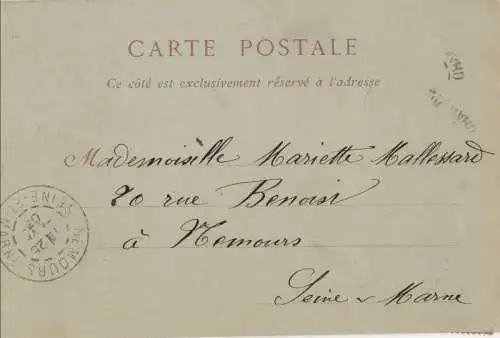 CARTE POSTALE
Ce côté est exclusivement réservé à l'adresse
Mademoiselle Mariette Mallessard
20 rue Benoist
à Nemours
Seine & Marne
NEMOURS
SEINE-ET-MARNE